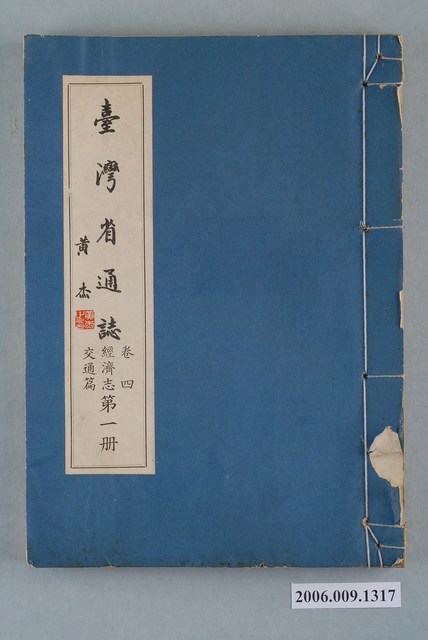 臺灣省通誌
卷四
經濟志第一册
交通篇
黃杰
2006.009.1317